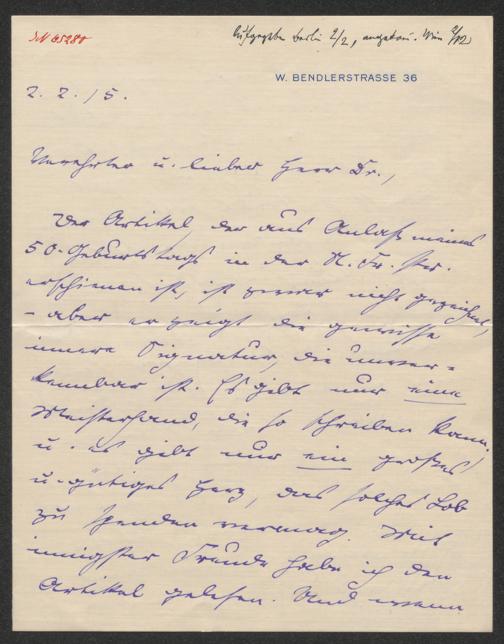 IN 65280
Aufgegeben Berlin 2/2, angekom. Wien 4/2
W. BENDLERSTRASSE 36
2. 2. 15.
Verehrter u. lieber Herr Dr.,
Der Artikel, der aus Anlaß meines
50. Geburtstags in der N. Fr. Pr.
erschienen ist, ist zwar nicht gezeichnet,
– aber er zeigt die gewisse
innere Signatur, die unver-
kennbar ist. Es gibt nur eine
Meisterhand, die so schreiben kann
u. es gibt nur ein großes
u. gütiges Herz, das solches Lob
zu spenden vermag. Mit
innigster Freude habe ich den
Artikel gelesen. Und wenn